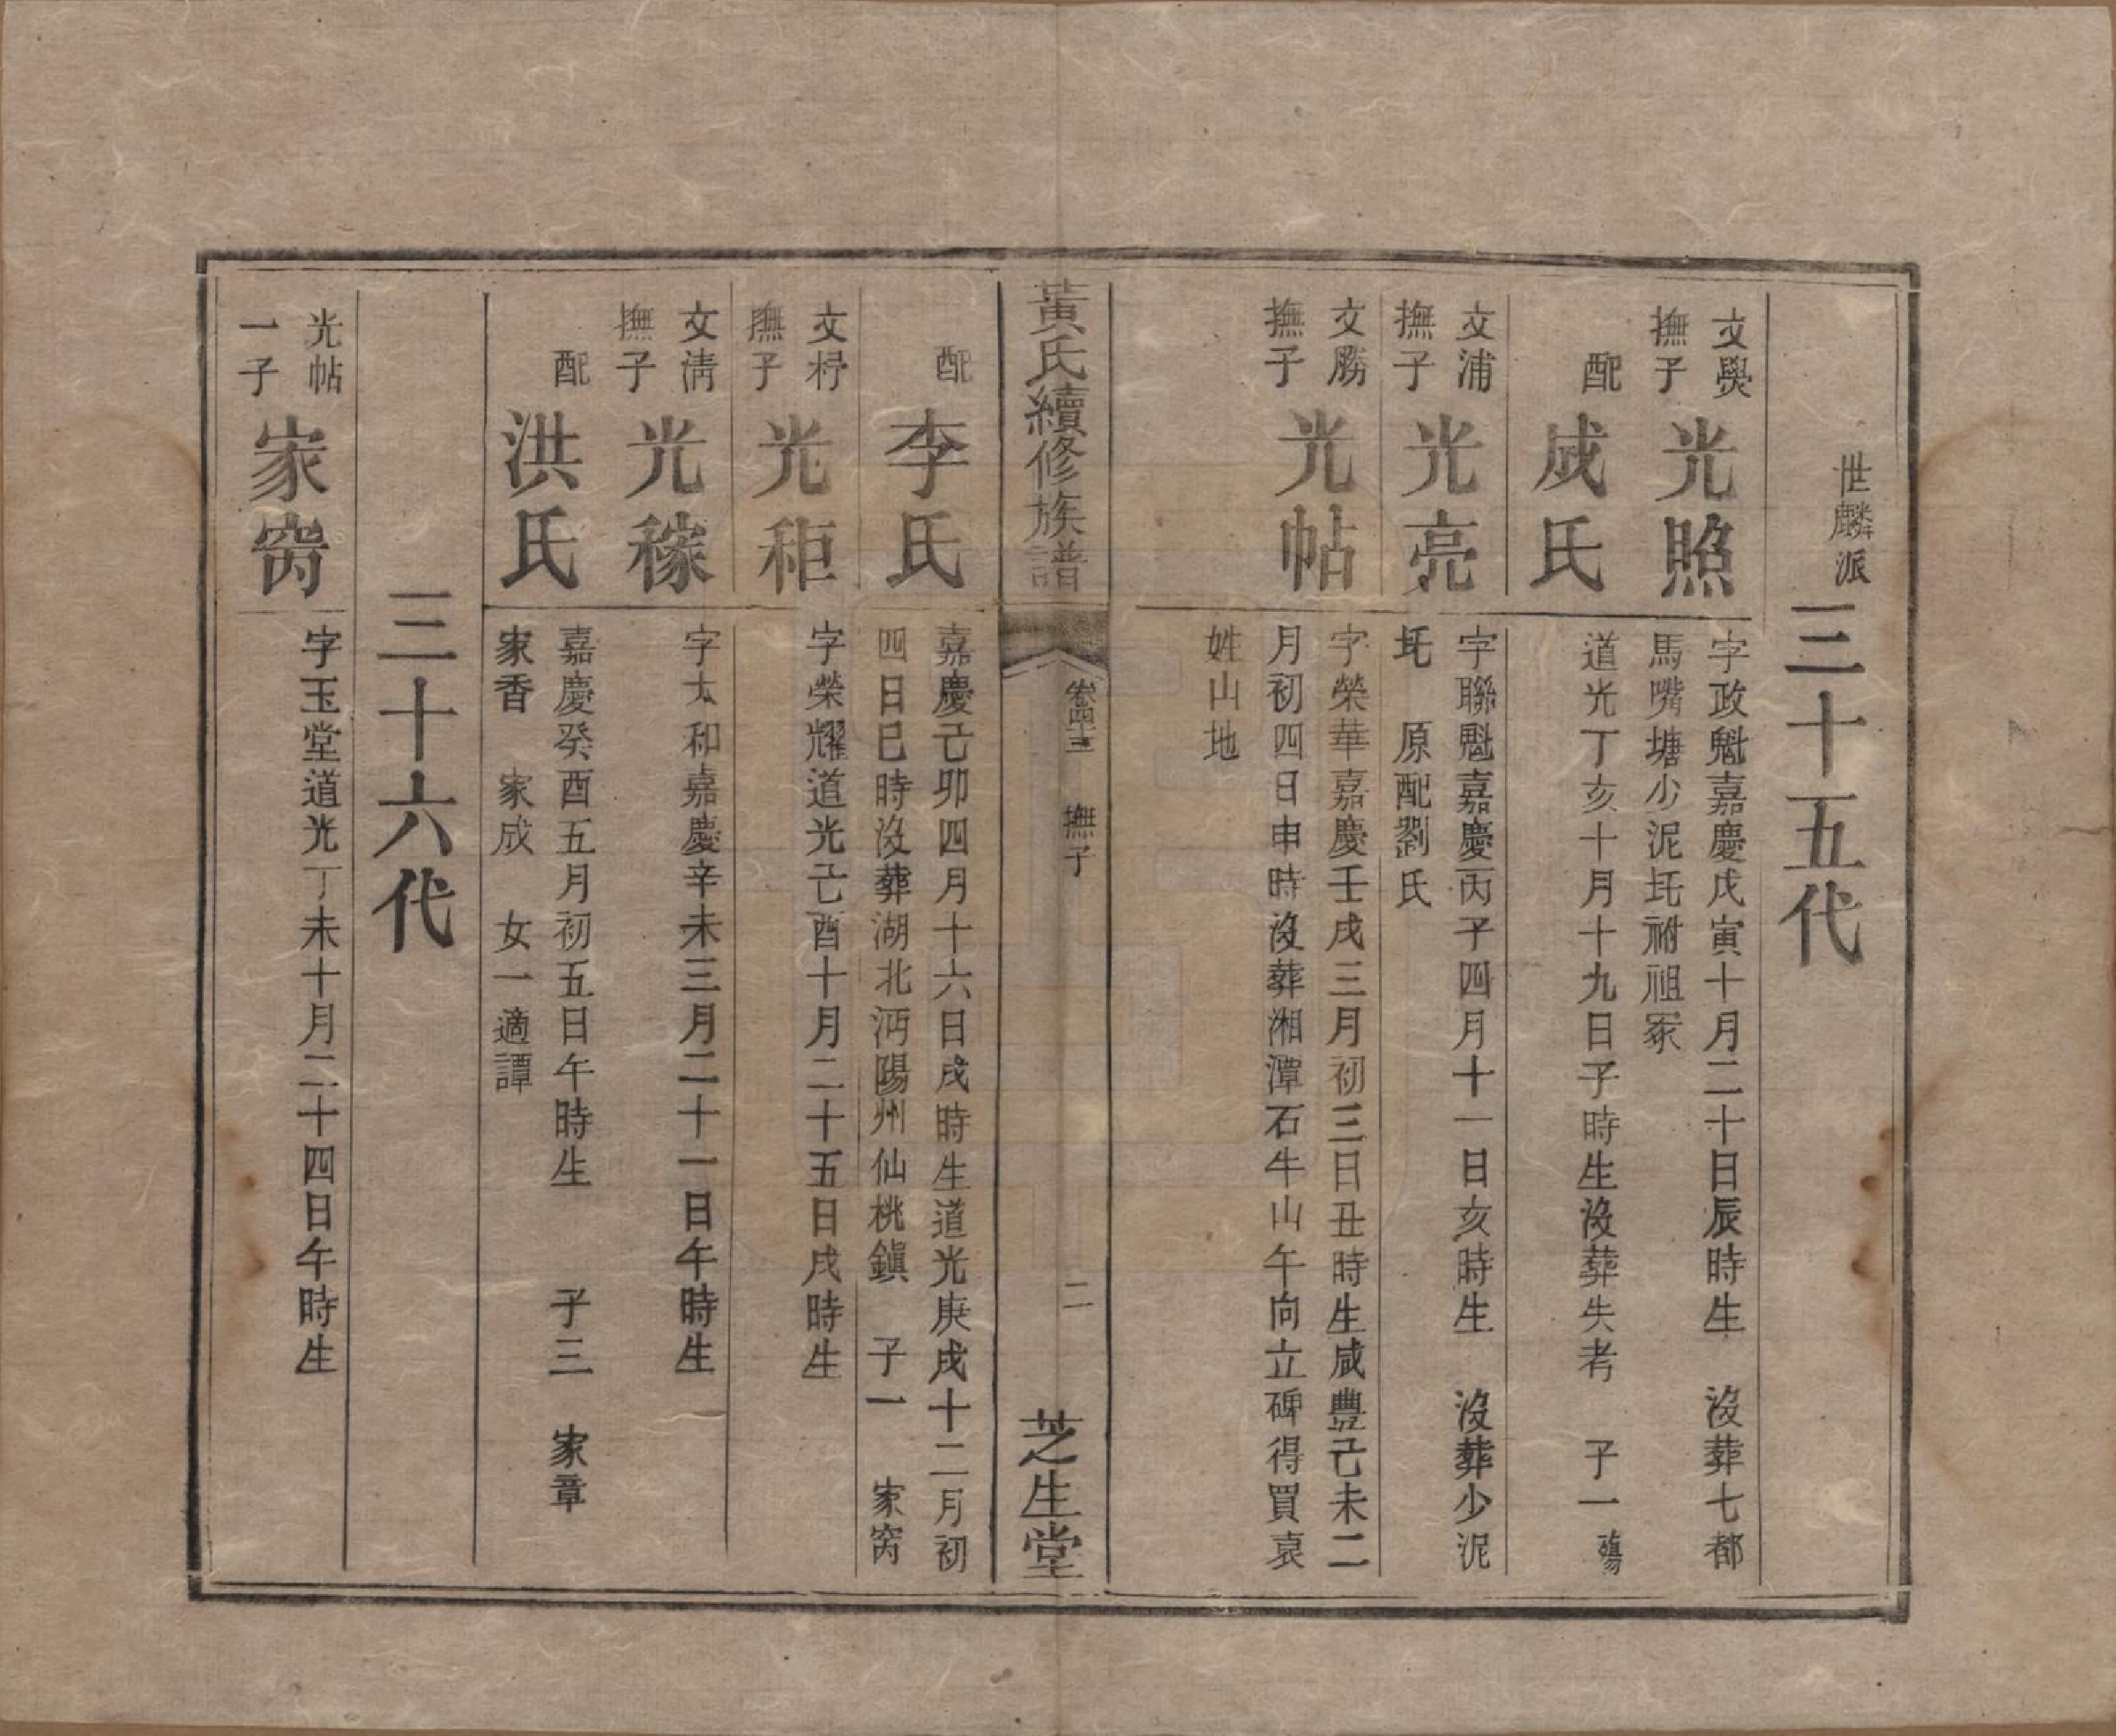 世麟派
三十五代
文奐撫子
光照
字政魁嘉慶戊寅十月二十日辰時生 沒葬七都
馬嘴塘少泥坵祔祖冢
配
成氏
道光丁亥十月十九日子時生沒葬失考 子一殤
文浦撫子
光亮
字聯魁嘉慶丙子四月十一日亥時生 沒葬少泥
坵 原配劉氏
文勝撫子
光帖
字榮華嘉慶壬戌三月初三日丑時生咸豐己未二
月初四日申時沒葬湘潭石牛山午向立碑得買袁
姓山地
黃氏續修族譜
卷四十三 撫子
二
芝生堂
配
李氏
嘉慶己卯四月十六日戌時生道光庚戌十二月初
四日巳時沒葬湖北沔陽州仙桃鎮 子一 家窉
文杍撫子
光秬
字榮耀道光己酉十月二十五日戌時生
文清撫子
光稼
字太和嘉慶辛未三月二十一日午時生
配
洪氏
嘉慶癸酉五月初五日午時生 子三 家章
家香 家成 女一適譚
三十六代
光帖一子
家窉
字玉堂道光丁未十月二十四日午時生